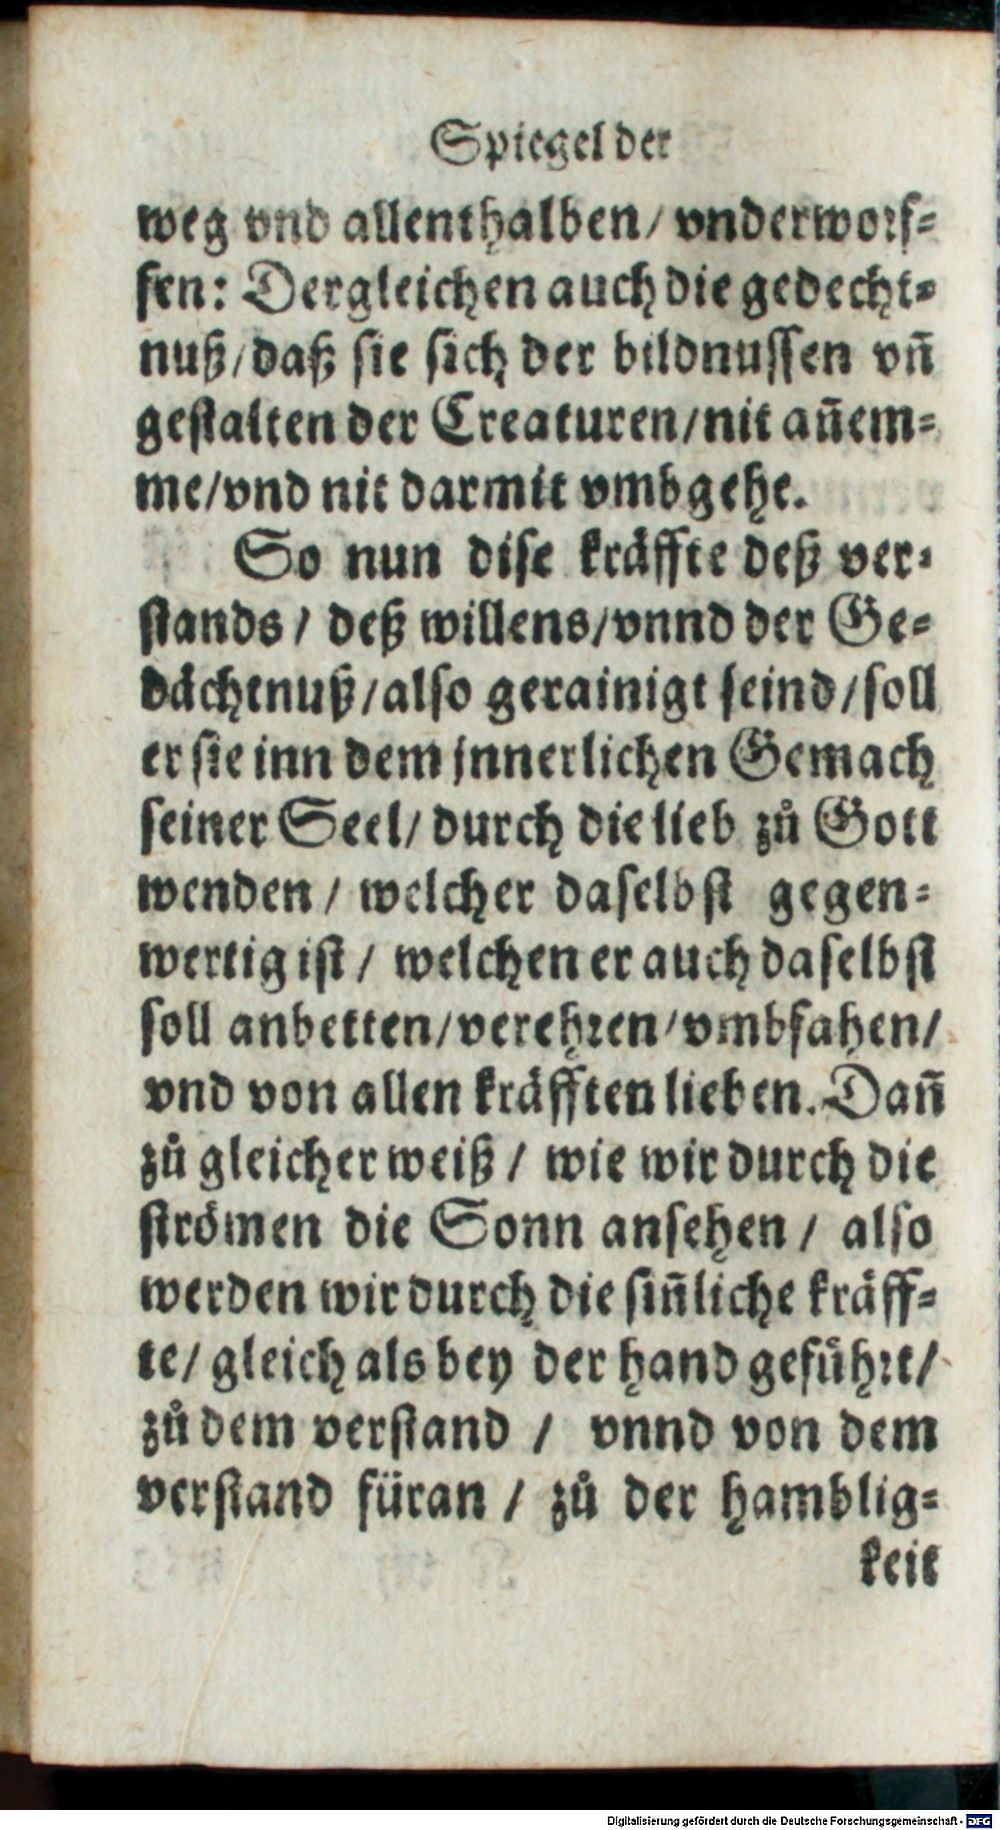 Spiegel der
weg vnd allenthalben/ vnderworf⸗
fen: Dergleichen auch die gedecht⸗
nuß/daß sie sich der bildnussen vñ
gestalten der Creaturen/nit añem⸗
me/vnd nit darmit vmbgehe.
So nun dise kräffte deß ver⸗
stands / deß willens/vnnd der Ge⸗
dächtnuß/also gerainigt seind/soll
er sie inn dem jnnerlichen Gemach
seiner Seel/ durch die lieb zů Gott
wenden / welcher daselbst gegen⸗
wertig ist / welchen er auch daselbst
soll anbetten/verehren/vmbfahen/
vnd von allen kräfften lieben. Dañ
zů gleicher weiß / wie wir durch die
strömen die Sonn ansehen / also
werden wir durch die siñliche kräff⸗
te/ gleich als bey der hand gefůhrt/
zů dem verstand / vnnd von dem
verstand füran / zů der hamblig⸗
keit
Digitalisierung gefördert durch die Deutsche Forschungsgemeinschaft - DFG